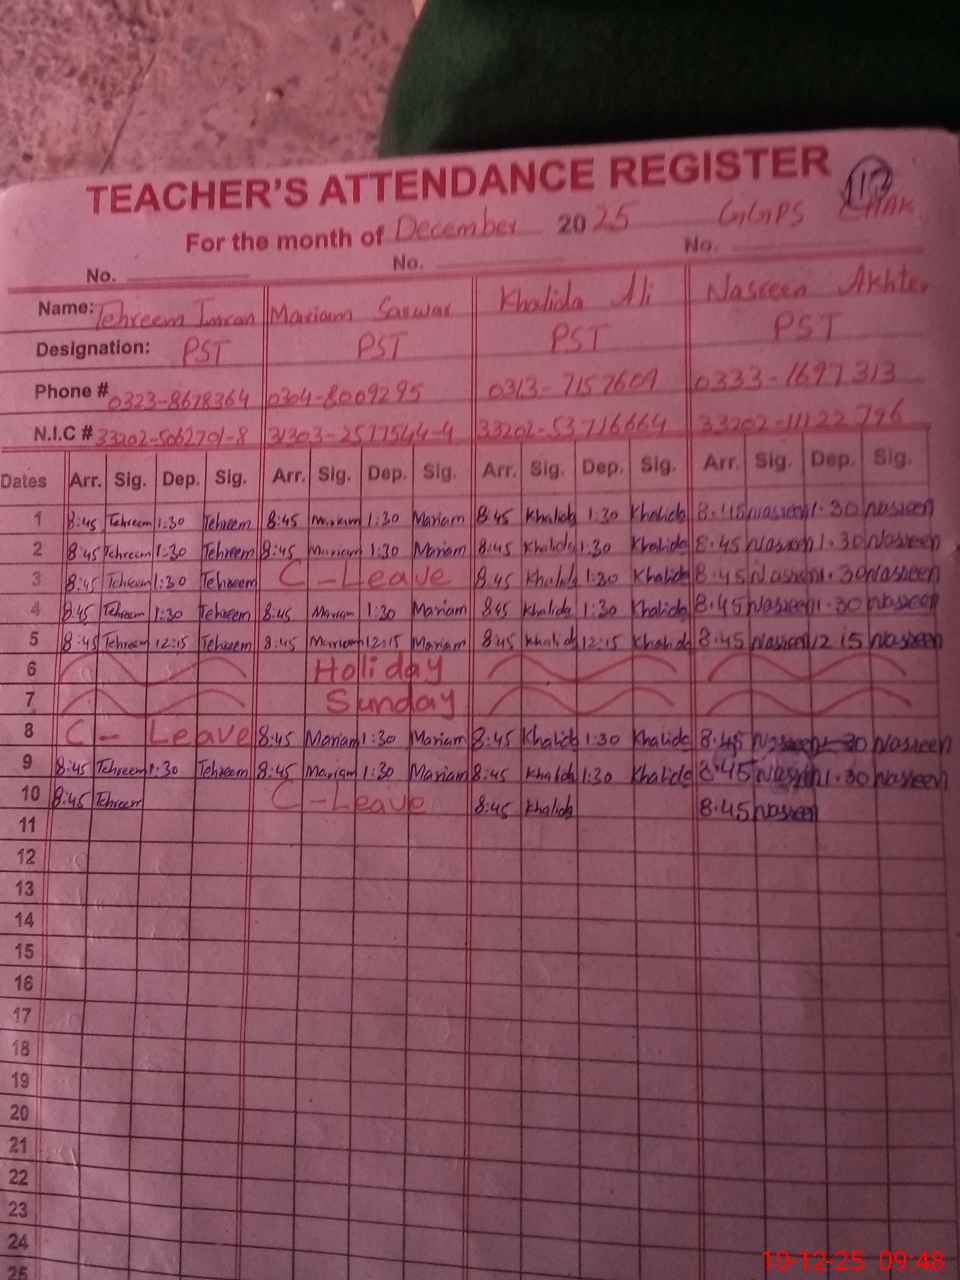 TEACHER'S ATTENDANCE REGISTER 117
For the month of December 2025 GGPS CHAK
No. No. No.
Name: Tehreem Imran Mariam Sarwar Khalida Ali Nasreen Akhter
Designation: PST PST PST PST
Phone # 0323-8678364 0304-8009295 0313-7157609 0333-1697313
N.I.C # 33202-5062701-8 31303-2577544-4 33202-53716664 33202-1122796
Dates Arr. Sig. Dep. Sig. Arr. Sig. Dep. Sig. Arr. Sig. Dep. Sig. Arr. Sig. Dep. Sig.
1 8:45 Tehreem 1:30 Tehreem 8:45 Mariam 1:30 Mariam 8:45 Khalida 1:30 Khalida 8:45 Nasreen 1:30 Nasreen
2 8:45 Tehreem 1:30 Tehreem 8:45 Mariam 1:30 Mariam 8:45 Khalida 1:30 Khalida 8:45 Nasreen 1:30 Nasreen
3 8:45 Tehreem 1:30 Tehreem C-Leave 8:45 Khalida 1:30 Khalida 8:45 Nasreen 1:30 Nasreen
4 8:45 Tehreem 1:30 Tehreem 8:45 Mariam 1:30 Mariam 8:45 Khalida 1:30 Khalida 8:45 Nasreen 1:30 Nasreen
5 8:45 Tehreem 12:15 Tehreem 8:45 Mariam 12:15 Mariam 8:45 Khalida 12:15 Khalida 8:45 Nasreen 12:15 Nasreen
6 Holiday
7 Sunday
8 C- Leave 8:45 Mariam 1:30 Mariam 8:45 Khalida 1:30 Khalida 8:45 Nasreen 1:30 Nasreen
9 8:45 Tehreem 1:30 Tehreem 8:45 Mariam 1:30 Mariam 8:45 Khalida 1:30 Khalida 8:45 Nasreen 1:30 Nasreen
10 8:45 Tehreem C-Leave 8:45 Khalida 8:45 Nasreen
11
12
13
14
15
16
17
18
19
20
21
22
23
24
25
10-12-25 09:48